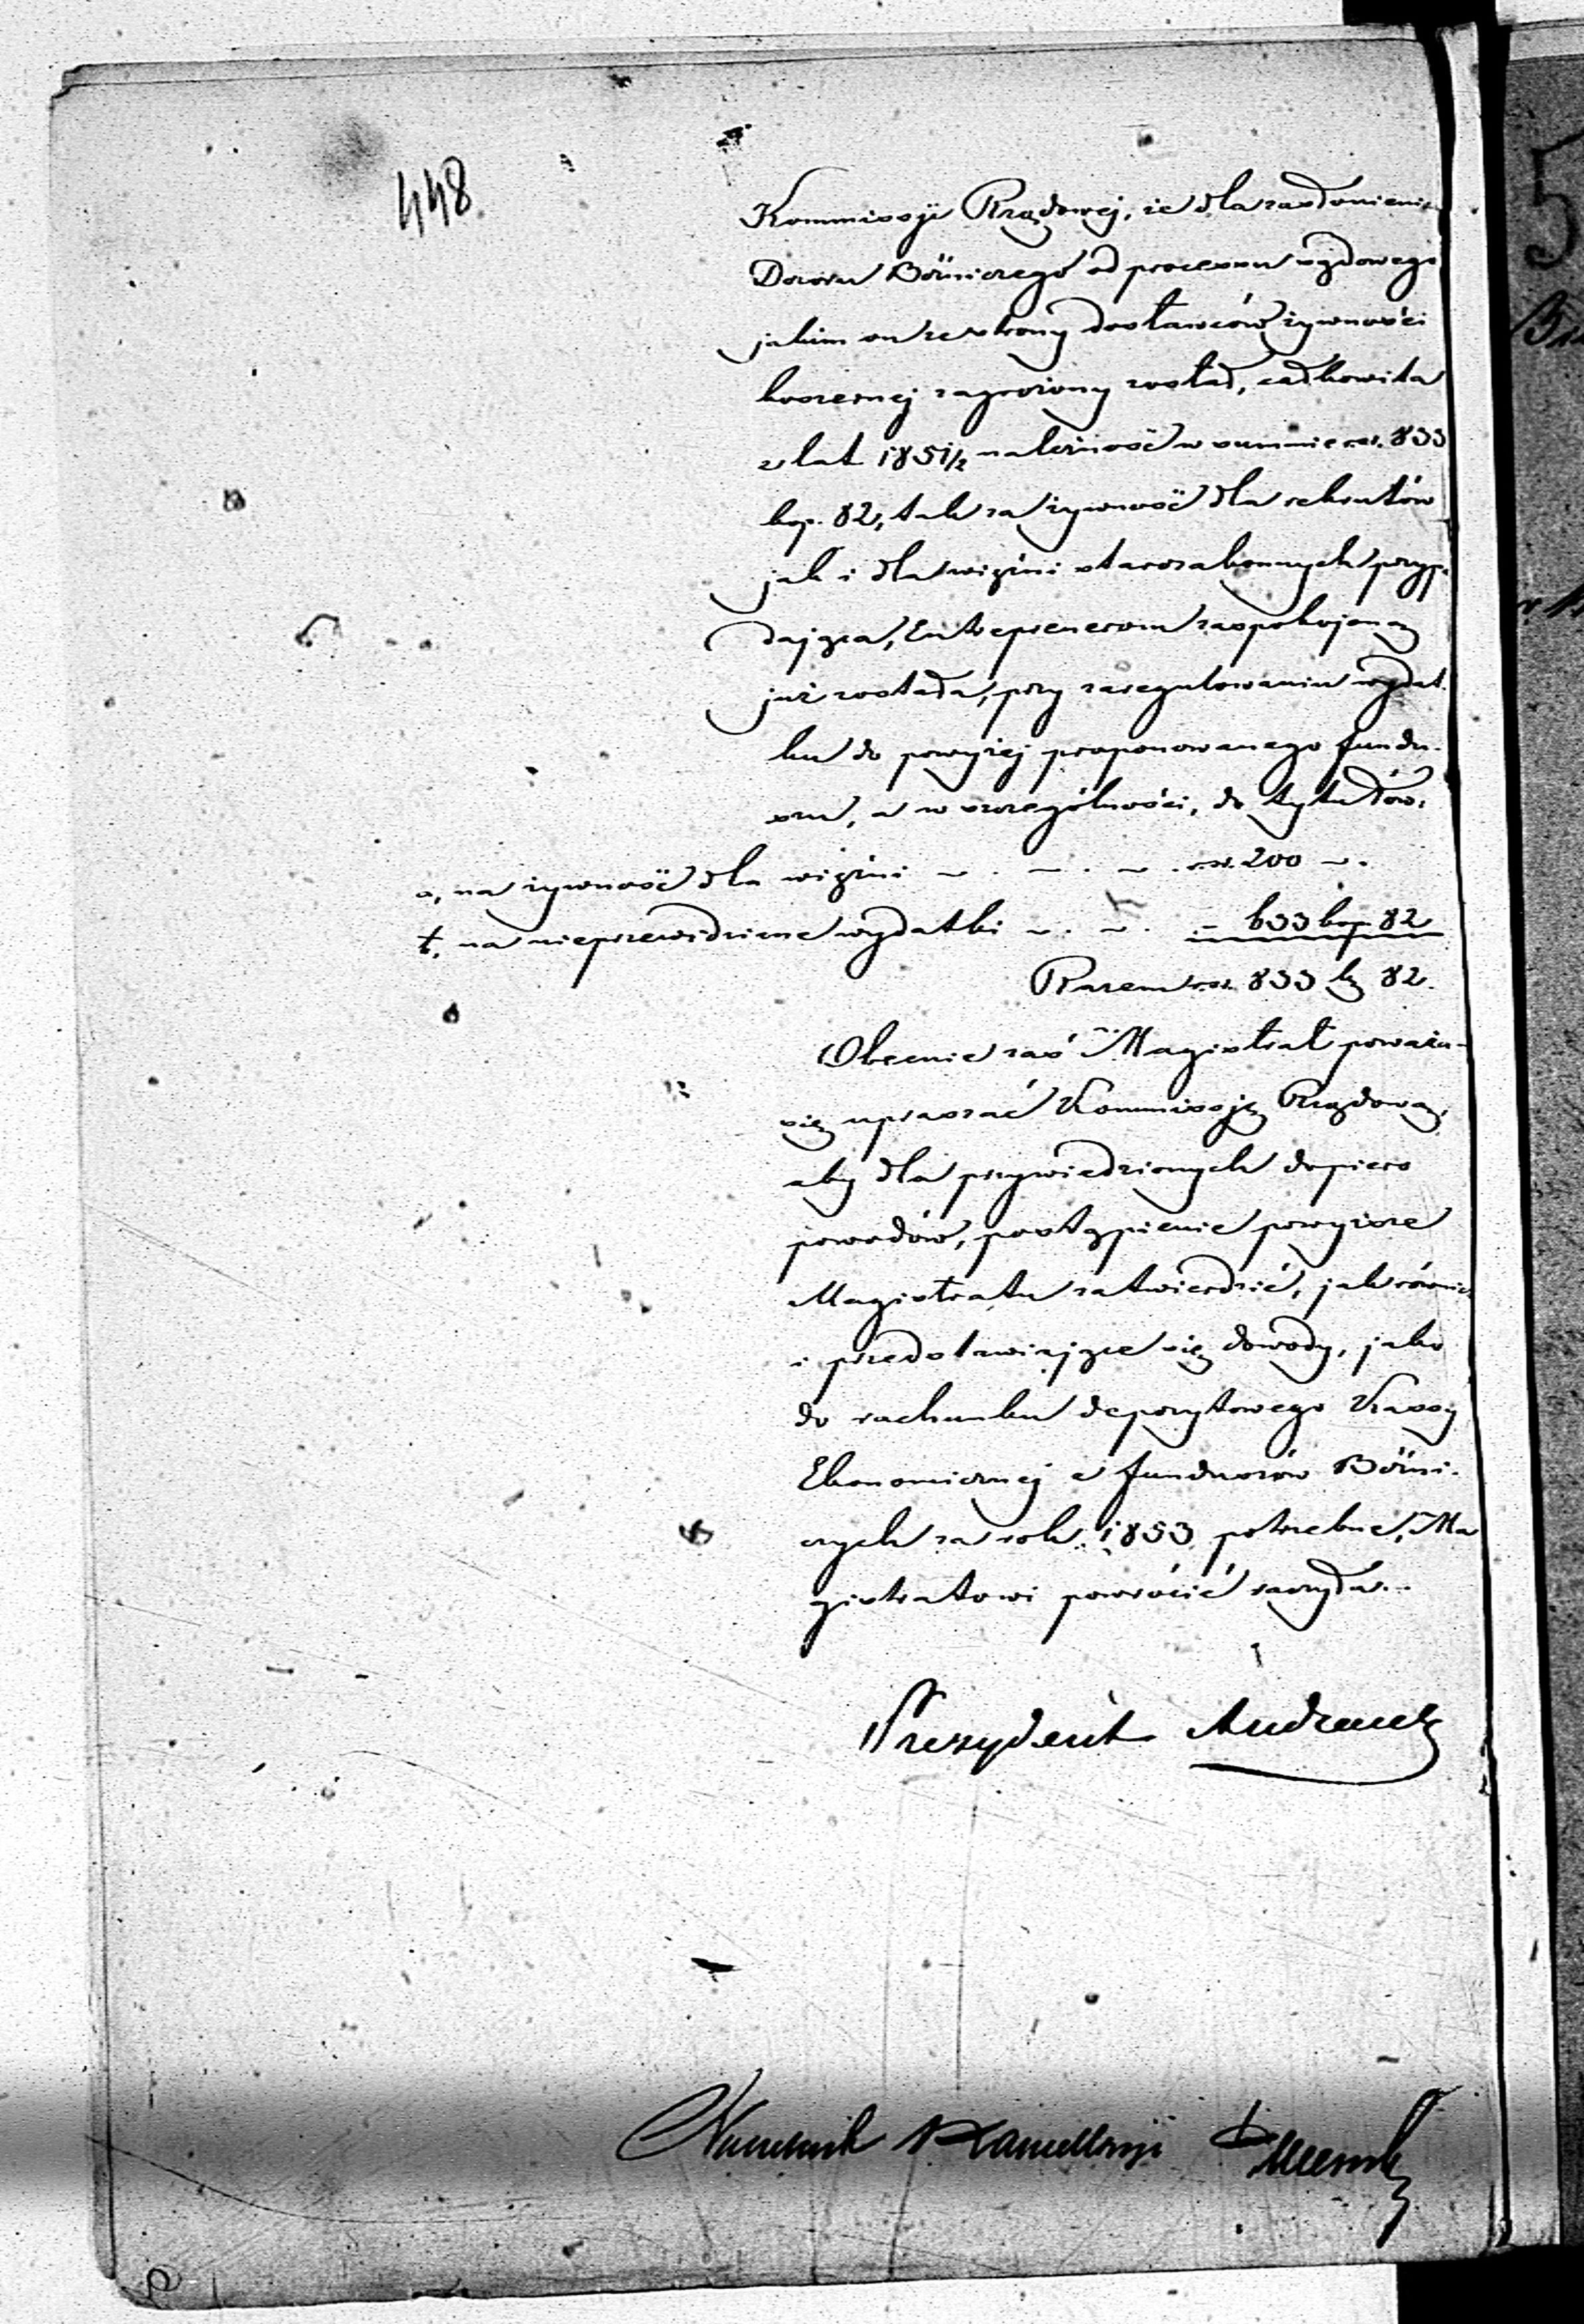 448
Kommissyi Rządowej, że dla zasłonienia
Dozoru Bóżniczego od processu sądowego
jakim on ze strony dostawców żywności
koszernej zagrożony został, całkowita
z lat 1851/2 należność w summie rsr. 833
kop. 82, tak za żywność dla rekrutów
jak i dla więźni starozakonnych przypa
dająca, Entreprenerom zaspokojoną
już została, przy zaregulowaniu wydat-
ku do powyżej proponowanego fundu-
szu, a w szczególności, do tytułów:
a, na żywność dla więźni ~ . ~ . ~ . rsr. 200 ~.
b, na nieprzewidziane wydatki ~ . ~ . – 633 kop. 82
Razem rsr. 833 kp 82.
Obecnie zaś Magistrat poważa
się upraszać Kommissję Rządową,
aby dla przywiedzionych dopiero
powodów, postąpienie powyższe
Magistratu zatwierdzić, jak również
i przedstawiające się dowody, jako
do rachunku depozytowego Kassy
Ekonomicznej z funduszów Bóżni-
czych za rok 1853 potrzebne, Ma
gistratowi powrócić raczyła.
Prezydent
Naczelnik Kancellaryi